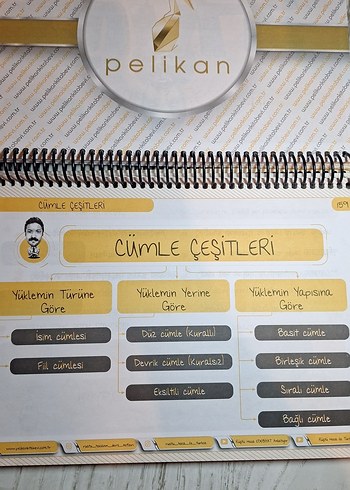 pelikan
CÜMLE ÇEŞİTLERİ
159
CÜMLE ÇEŞİTLERİ
Yüklemin Türüne
Göre
İsim cümlesi
Fiil cümlesi
Yüklemin Yerine
Göre
Düz cümle (Kurallı)
Devrik cümle (Kuralsız)
Eksiltili cümle
Yüklemin Yapısına
Göre
Basit cümle
Birleşik cümle
Sıralı cümle
Bağlı cümle